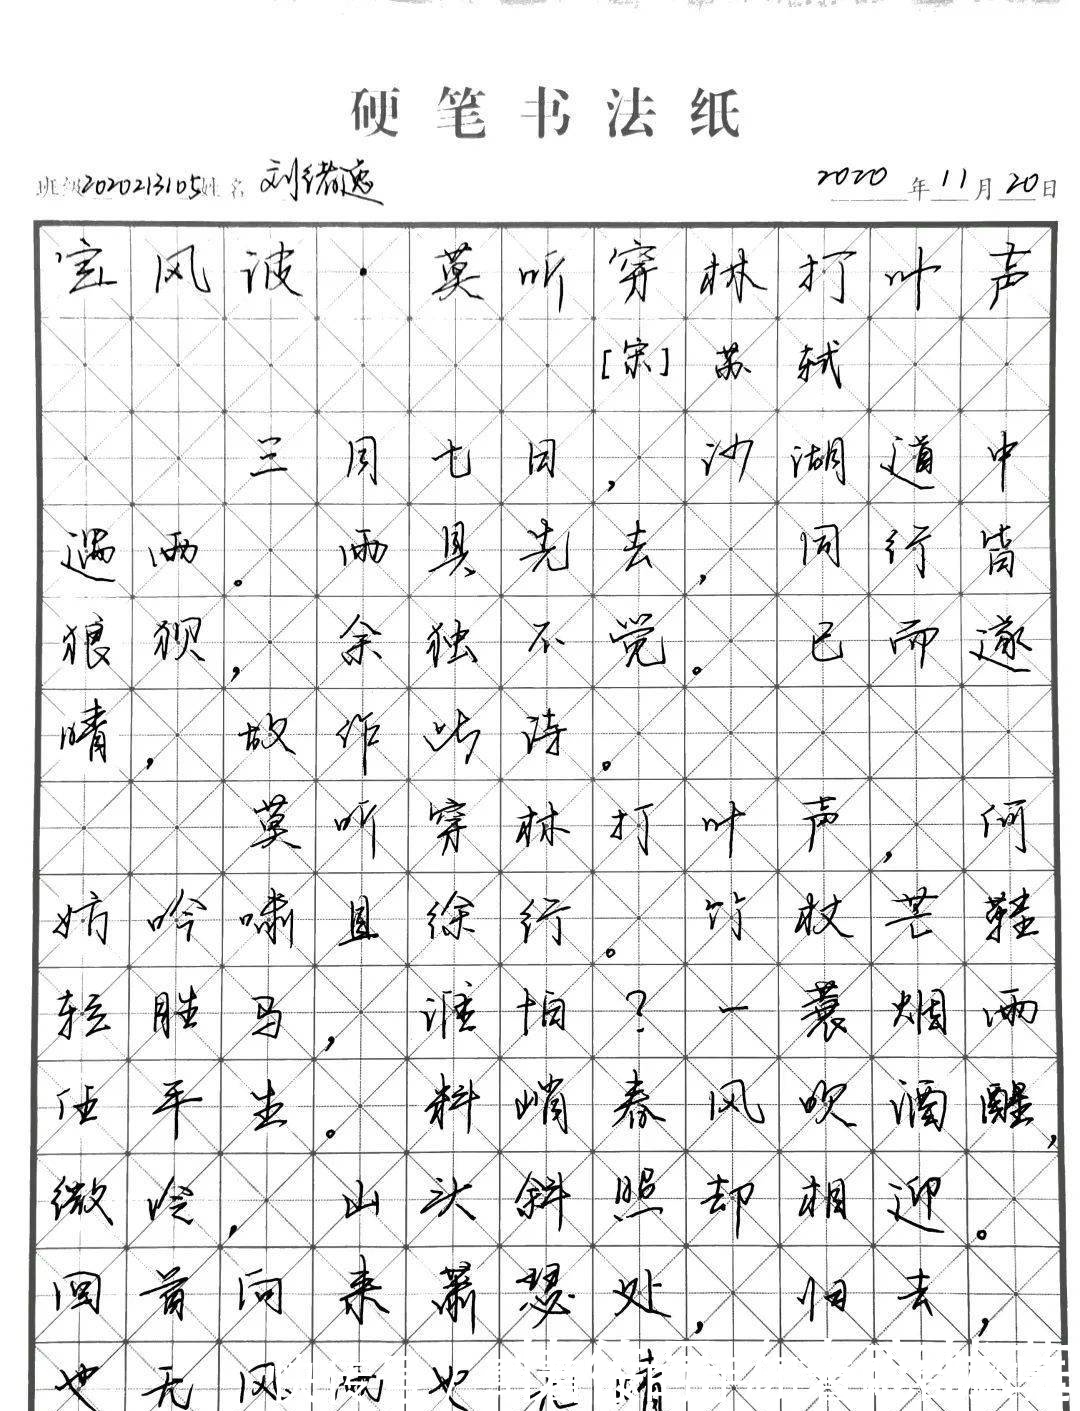 硬笔书法纸
班级2020213105姓名 刘绪逸 2020年11月20日
定风波·莫听穿林打叶声
[宋]苏轼
三月七日,沙湖道中
遇雨。雨具先去,同行皆
狼狈,余独不觉。已而遂
晴,故作此诗。
莫听穿林打叶声,何
妨吟啸且徐行。竹杖芒鞋
轻胜马,谁怕?一蓑烟雨
任平生。料峭春风吹酒醒,
微冷,山头斜照却相迎。
回首向来萧瑟处,归去,
也无风雨也无晴